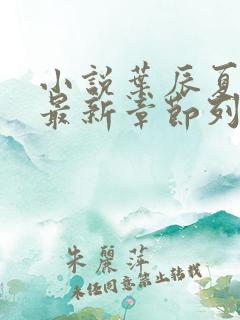 小説葉辰夏
最新章節列
朱麗萍
未经同意禁止转载